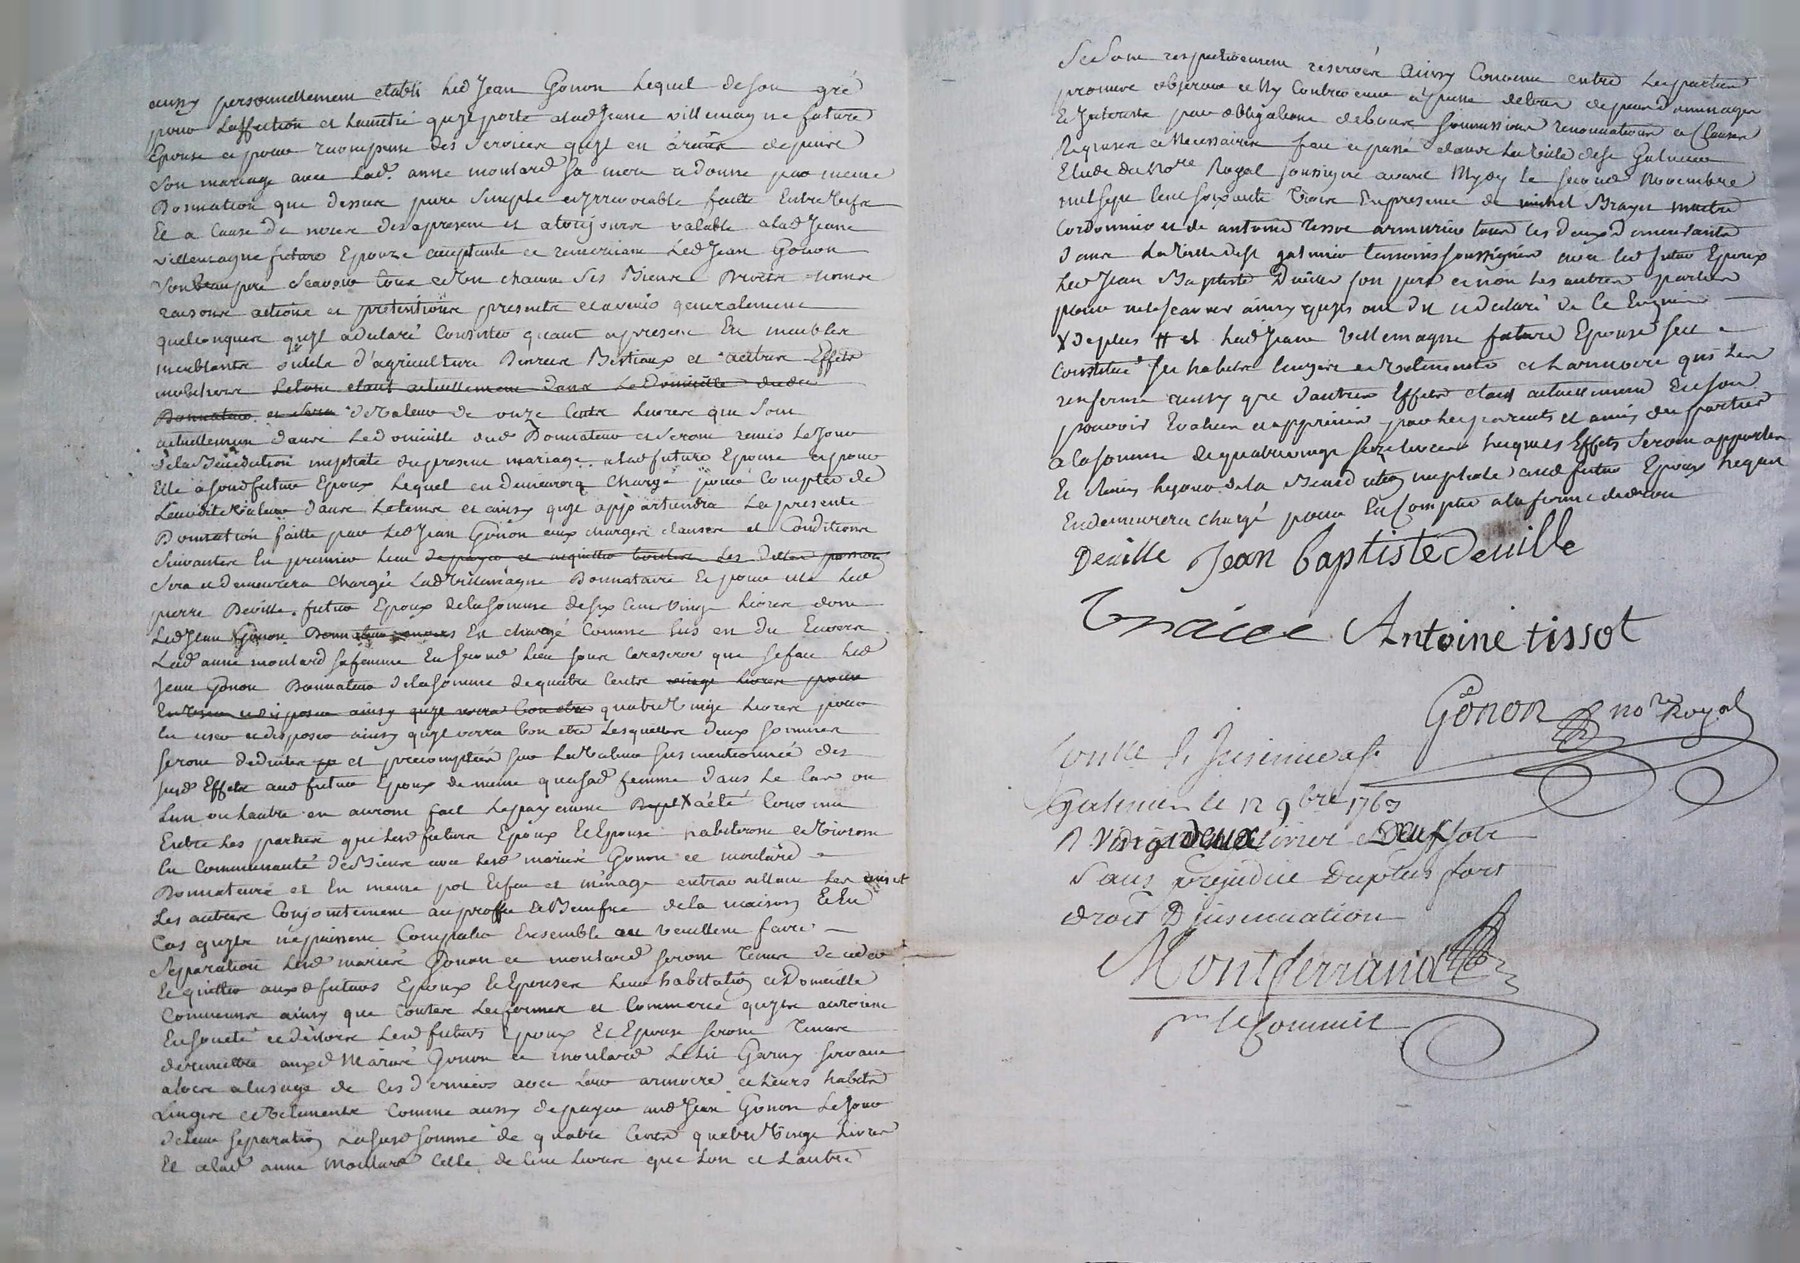 aussy personnellement etabli led Jean Gonon lequel de son gré
pour laffection et lamitié quil porte a lad Jeane villemagne future
Epouse et pour recompense des services quil en a recu depuis
son mariage avec lad. anne moulard sa mere a donné par meme
Donnation que dessus pure simple et irrevocable faitte Entre vifs
Et a Cause de noces des apresent et atoujours valable a lad Jeane
villemagne future Epouze acceptante et remerciant led Jean Gonon
son beaupere scavoir tous et Un chacun ses Biens Droits noms
raisons actions et pretentions presents et avenir generalement
quelconques quil a declaré Consister quant apresent En meubles
meublants outils d'agriculture Denrées Bestiaux et autres Effets
mobiliers le tout etant actuellement dans le Domicille dudit
Donnateur et sera de valeur de onze Cents livres que sont
actuellement dans le domicille dud Donnateur et seront remis le jour
de la Benediction nuptiale du present mariage a lad future Epouse et pour
Elle a sond futur Epoux lequel en demeurera chargé pour Compter de
leurdite valeur dans le tems et ainsy quil appartiendra la presente
Donnation faitte par led Jean Gonon aux charges clauses et Conditions
suivantes En premier lieu de payer et acquitter toutes les dettes passives
sera et demeurera Chargée lad Villemagne Donnataire Et pour elle led
pierre Deville futur Epoux de la somme de six Cent vingt livres dont
led Jean Gonon Donnateur envers En chargé Comme sus est Dit Envers
lad anne moulard sa femme En second lieu sous la reserve que se fait led
Jean Gonon Donnateur de la somme de quatre Cents vingt livres pour
En User et disposer ainsy quil verra bon etre quatre Vingt livres pour
En user et disposer ainsy quil verra bon etre lesquelles deux sommes
seront deduites et precomptées sur la valeur sus mentionnée des
susd Effets aud futur Epoux de meme qua sad femme dans le Cas ou
lun ou lautre en auront fait le payement X a été Convenu
Entre les parties que lesd futurs Epoux Et Epouse habiteront et Vivront
En Communauté de Biens avec lesd mariés Gonon et moulard
Donnateurs et En meme pot Et feu et ménage entravaillant les uns et
les autres Conjointement au proffit et Benefice de la maison Et En
Cas quils ne puissent Compatir Ensemble ou veuillent faire
Separation lesd mariés Gonon et moulard seront Tenus de ceder
Et quitter auxd futurs Epoux Et Epouse leur habitation et Domicille
Commune ainsy que toutes les fermes et Commerce quils auroient
En societé et dehors lesd futurs Epoux Et Epouse seront Tenus
de remettre auxd Mariés Gonon et moulard le lit Garny servant
a leur alusage de Ces derniers avec leur armoire et leurs habits
linges et vetements Comme aussy de payer aud Jean Gonon le jour
de leur separation la susd somme de quatre Cents quatre Vingt livres
Et a lad anne Moulard Celle de Cent livres que lun et lautre
se sont respectivement reservée Ainsy Convenu entre les parties
promis observer et ny Contrevenir a peine de tous depens dommages
Et Interets par obligations de biens soumissions renonciations et Clauses
Requises et Necessaires fait et passé dans la Ville de St Galmier
Etude du No.re Royal soussigné avant Mydy le second Novembre
mil sept cent soixante trois En presence de michel Brayet maitre
Cordonnier et de antoine Tissot armurier tous les deux demeurants
dans la Ville de St galmier temoins soussignés avec led futur Epoux
led Jean Baptiste Deville son pere et non les autres parties
pour ne le scavoir ainsy quils ont dit et declaré de Ce Enquis
X de plus # et lad Jeane Villemagne future Epouse sest
Constitué ses habits linges et Vetements et larmoire qui les
renferme aussy que dautres Effets etant actuellement En son
pouvoir Evalués et appreciés par les parents et amis des parties
a la somme de quatrevingt seize livres lesquels Effets seront apportés
Et remis le jour de la Benediction nuptiale aud futur Epoux lequel
En demeurera chargé pour En Compter a la forme du droit
Deville Jean baptiste deville
Antoine tissot
Gonon no.re Royal
Conllé & Insinué a St
Galmier le 12 9bre 1763
R Vingt deux livres Deuf sols
Sans prejudice Du plus fort
droit D'insinuation
Montferrand
pr le Commis